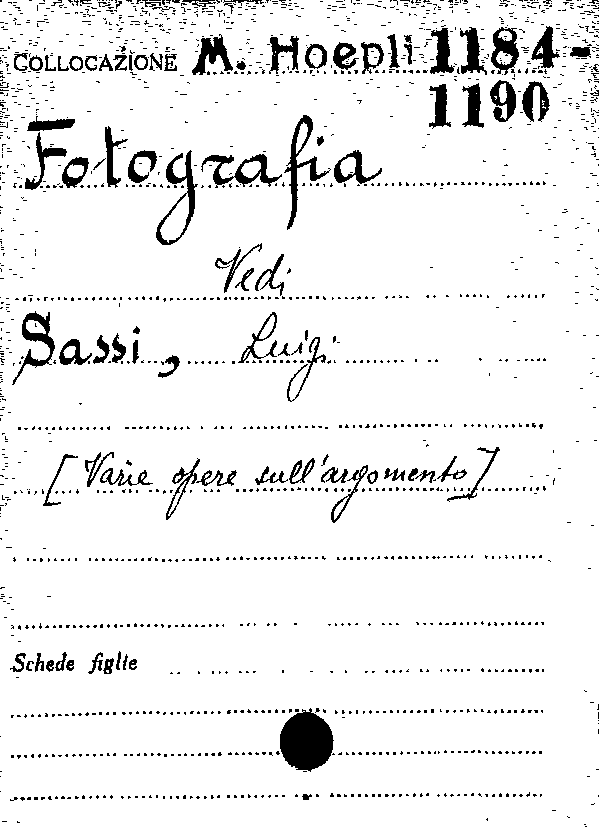 COLLOCAZIONE M. Hoepli 1184-
1190
Fotografia
Vedi
Sassi, Luigi
[Varie opere sull'argomento]
Schede figlie